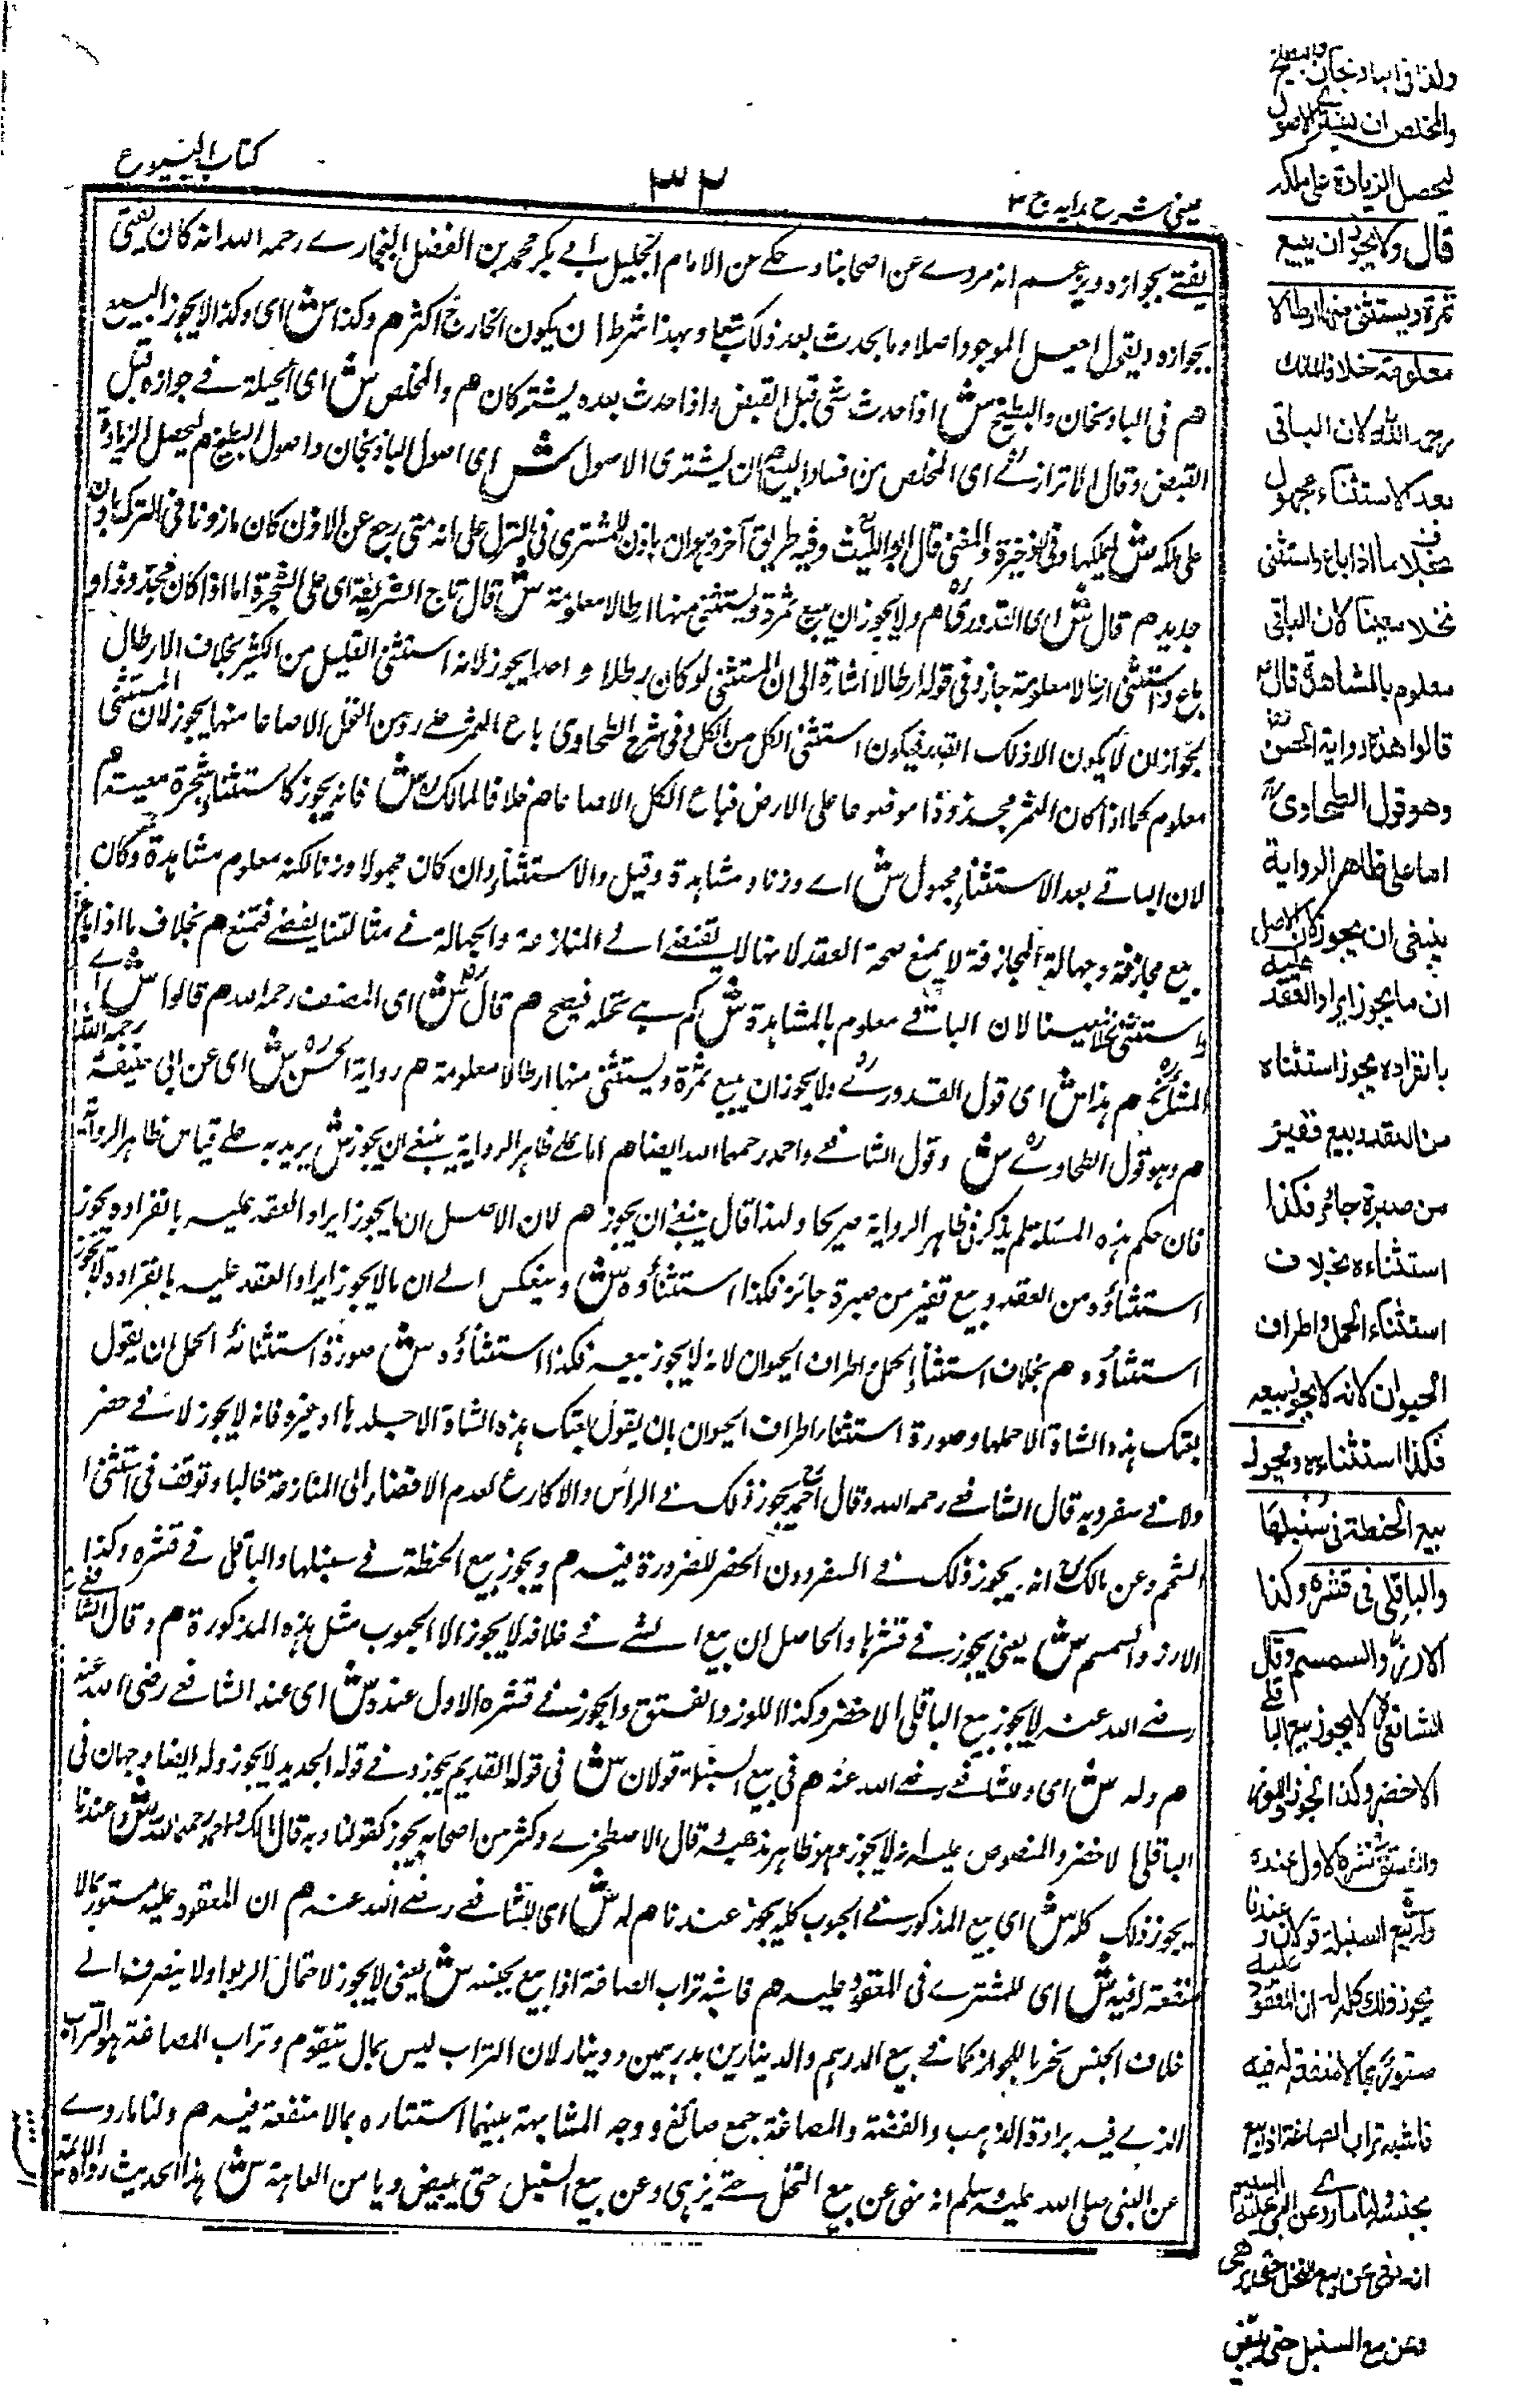 كتاب البيوع
٣٢
عيني شرح هدايه ج ٣
يفتي بجوازه ويزعم انه مروي عن اصحابنا وحكي عن الامام الجليل ابي بكر محمد بن الفضل البخاري رحمه الله انه كان يفتي
بجوازه ويقول اجعل الموجود اصلا وما يحدث بعد ذلك تبعا وبهذا شرط ان يكون الخارج اكثر هم وكذا ش اى وكذا لا يجوز البيع
هم في الباذنجان والبطيخ ش اذا حدث شئ قبل القبض واذا حدث بعده يشتركان هم والمخلص ش اى الحيلة في جوازه قبل
القبض وقال الاترازي اى المخلص من فساد البيع هم ان يشترى الاصول ش اى اصول الباذنجان واصول البطيخ هم ليحصل الزيادة
على ملكه ش ليملكها وفى الذخيرة والمغنى قال ابو الليث وفيه طريق آخر وهو ان ياذن للمشترى فى الترك على انه متى رجع عن الاذن كان ماذونا فى الترك باذن
جديد هم قال ش اى القدورى هم ولا يجوز ان يبيع ثمرة ويستثنى منها ارطالا معلومة ش قال تاج الشريعة اى على الشجرة اما اذا كان مجذوذا و
باع واستثنى ارطالا معلومة جاز وفى قوله ارطالا اشارة الى ان المستثنى لو كان رطلا واحدا يجوز لانه استثنى القليل من الكثير بخلاف الارطال
لجواز ان لا يكون الا ذلك القدر فيكون استثنى الكل من الكل وفى شرح الطحاوى باع الثمر على رؤس النخل الا صاعا منها يجوز لان المستثنى
معلوم كما اذا كان الثمر مجذوذا موضوعا على الارض فباع الكل الا صاعا هم خلافا لمالك ش فانه يجوز كاستثناء شجرة معينة هم
لان الباقي بعد الاستثناء مجهول ش اى وزنا ومشاهدة وقيل والاستثناء وان كان مجهولا وزنا لكنه معلوم مشاهدة وكان
بيع مجازفة وجهالة المجازفة لا يمنع صحة العقد لانها لا تفضى الى المنازعة والجهالة في مثالنا يفضى فتمنع هم بخلاف ما اذا باع
واستثنى نخلا معينا لان الباقي معلوم بالمشاهدة ش كم هي نخلة فيصح هم قال ش اى المصنف رحمه الله هم قالوا ش اى
المشائخ هم هذا ش اى قول القدوري ولا يجوز ان يبيع ثمرة ويستثنى منها ارطالا معلومة هم رواية الحسن ش اى عن ابى حنيفة رحمه الله
هم وهو قول الطحاوي ش وقول الشافعي واحمد رحمهما الله ايضا هم اما على ظاهر الرواية ينبغي ان يجوز ش يريد به على قياس ظاهر الرواية
فان حكم هذه المسئلة لم يذكر في ظاهر الرواية صريحا ولهذا قال ينبغي ان يجوز هم لان الاصل ان ما يجوز ايراد العقد عليه بانفراده يجوز
استثناؤه من العقد وبيع قفيز من صبرة جائز فكذا استثناؤه ش وينعكس الى ان ما لا يجوز ايراد العقد عليه بانفراده لا يجوز
استثناؤه هم بخلاف استثناء الحمل واطراف الحيوان لانه لا يجوز بيعه فكذا استثناؤه ش صورة استثنائه الحمل ان يقول
بعتك هذه الشاة الا حملها وصورة استثناء اطراف الحيوان بان يقول بعتك هذه الشاة الا جلدها او غيره فانه لا يجوز لا في حضر
ولا في سفر وبه قال الشافعي رحمه الله وقال احمد يجوز ذلك في الراس والاكارع لعدم الافضاء الى المنازعة غالبا وتوقف في استثناء
الشحم وعن مالك انه يجوز ذلك في السفر دون الحضر للضرورة فيه هم ويجوز بيع الحنطة في سنبلها والباقلى في قشره وكذا
الارز والسمسم ش يعنى يجوز في قشرها والحاصل ان بيع الشئ في غلافه لا يجوز الا الحبوب مثل هذه المذكورة هم وقال الشافعي
رضي الله عنه لا يجوز بيع الباقلى الاخضر وكذا اللوز والفستق والجوز في قشره الاول عنده ش اى عند الشافعي رضى الله عنه
هم وله ش اى وللشافعي رضي الله عنه هم في بيع السنبلة قولان ش فى قوله القديم يجوز وفي قوله الجديد لا يجوز وله ايضا وجهان فى
الباقلى الاخضر والمنصوص عليه انه لا يجوز وهو ظاهر مذهبه وقال الاصطخري وكثر من اصحابه يجوز كقولنا وبه قال مالك واحمد رحمهما الله ش وعندنا
يجوز ذلك كله ش اى بيع المذكور في الحبوب كله يجوز عندنا هم له ش اى للشافعي رضي الله عنه هم ان المعقود عليه مستور بما لا
منفعة له فيه ش اى للمشتري فى المعقود عليه هم فاشبه تراب الصاغة اذا بيع بجنسه ش يعني لا يجوز لاحتمال الربوا ولا ينصرف الى
خلاف الجنس تحريا للجواز كما في بيع الدرهم والدينارين بدرهمين ودينار لان التراب ليس بمال يتقوم وتراب الصاغة هو التراب
الذي فيه برادة الذهب والفضة والصاغة جمع صائغ ووجه المشابهة بينهما استتاره بما لا منفعة فيه هم ولنا ما روي
عن النبى صلى الله عليه وسلم انه نهى عن بيع النخل حتى يزهي وعن بيع السنبل حتى يبيض ويامن العاهة ش هذا الحديث رواه الائمة
وكذا في الباذنجان والبطيخ
والمخلص ان يشتري الاصول
ليحصل الزيادة على ملكه
قال ولا يجوز ان يبيع
ثمرة ويستثنى منها ارطالا
معلومة خلافا لمالك
رحمه الله لان الباقى
بعد الاستثناء مجهول
بخلاف ما اذا باع واستثنى
نخلا معينا لان الباقى
معلوم بالمشاهدة قال
قالوا هذه رواية الحسن
وهو قول الطحاوى
اما على ظاهر الرواية
ينبغى ان يجوز لان الاصل
ان ما يجوز ايراد العقد عليه
بانفراده يجوز استثناءه
من العقد وبيع قفيز
من صبرة جائز فكذا
استثناءه بخلاف
استثناء الحمل واطراف
الحيوان لانه لا يجوز بيعه
فكذا استثناءه ويجوز
بيع الحنطة في سنبلها
والباقلى في قشره وكذا
الارز والسمسم وقال
الشافعى لا يجوز بيع الباقلى
الاخضر وكذا الجوز واللوز
والفستق في قشره الاول عنده
وله في بيع السنبلة قولان وعندنا
يجوز ذلك كله له ان المعقود عليه
مستور بما لا منفعة له فيه
فاشبه تراب الصاغة اذا بيع
بجنسه ولنا ما روي عن النبى عليه السلام
انه نهى عن بيع النخل حتى يزهى
وعن بيع السنبل حتى يبيض